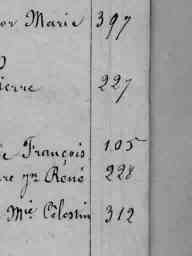 or Marie 397
ierre 227
e François 105
re jn René 228
Mie Célestin 312